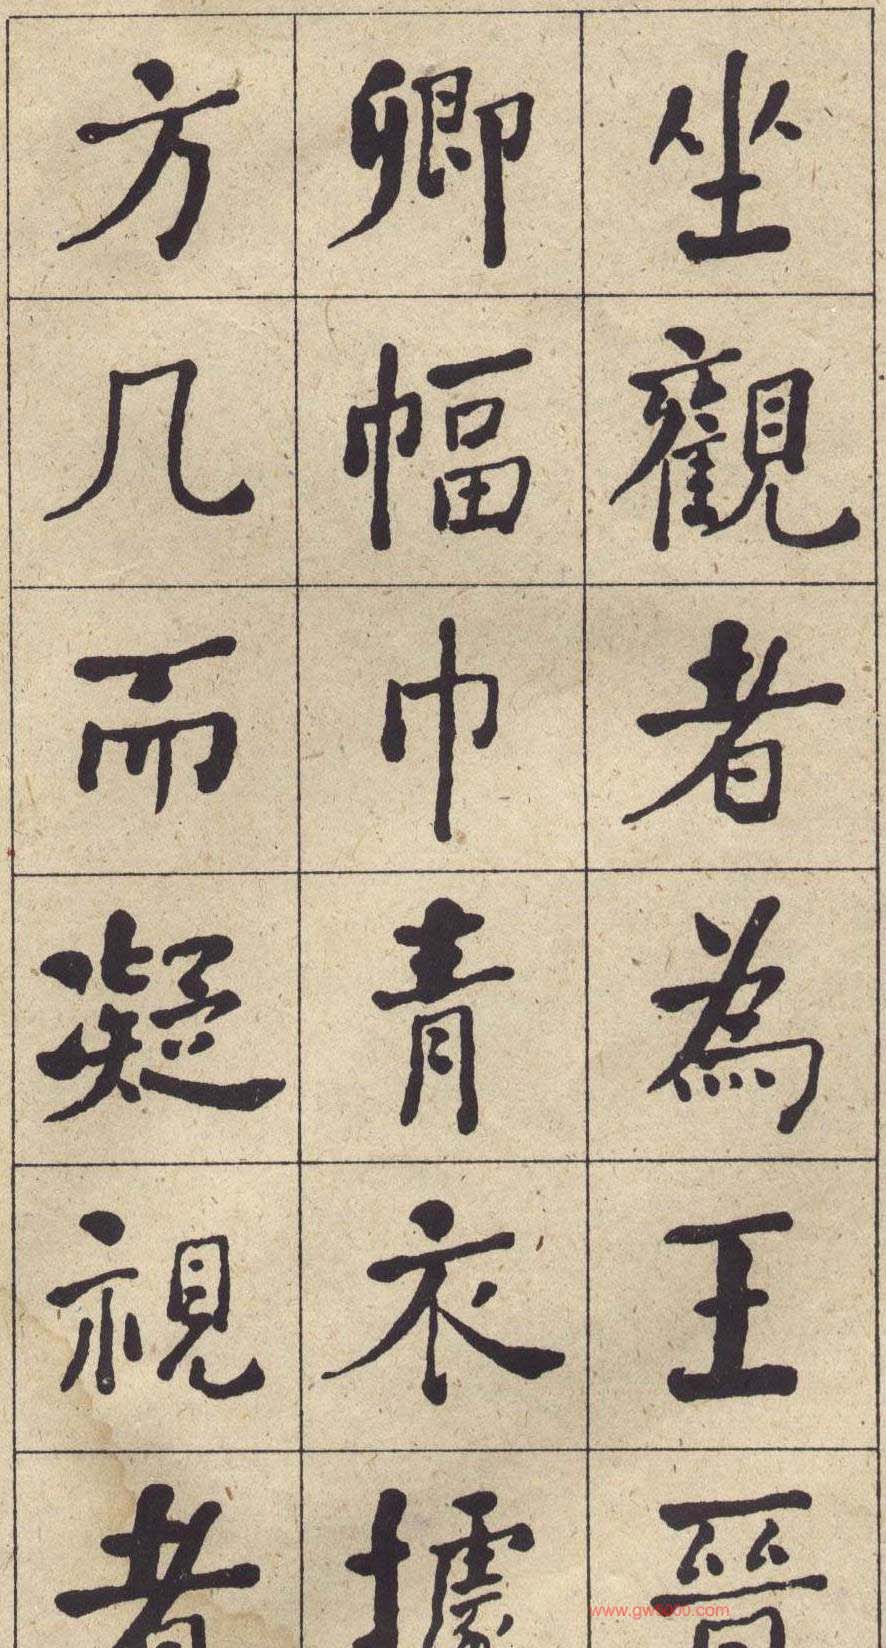 坐觀者為王晉
卿幅巾青衣據
方几而凝視者
www.gw5000.com